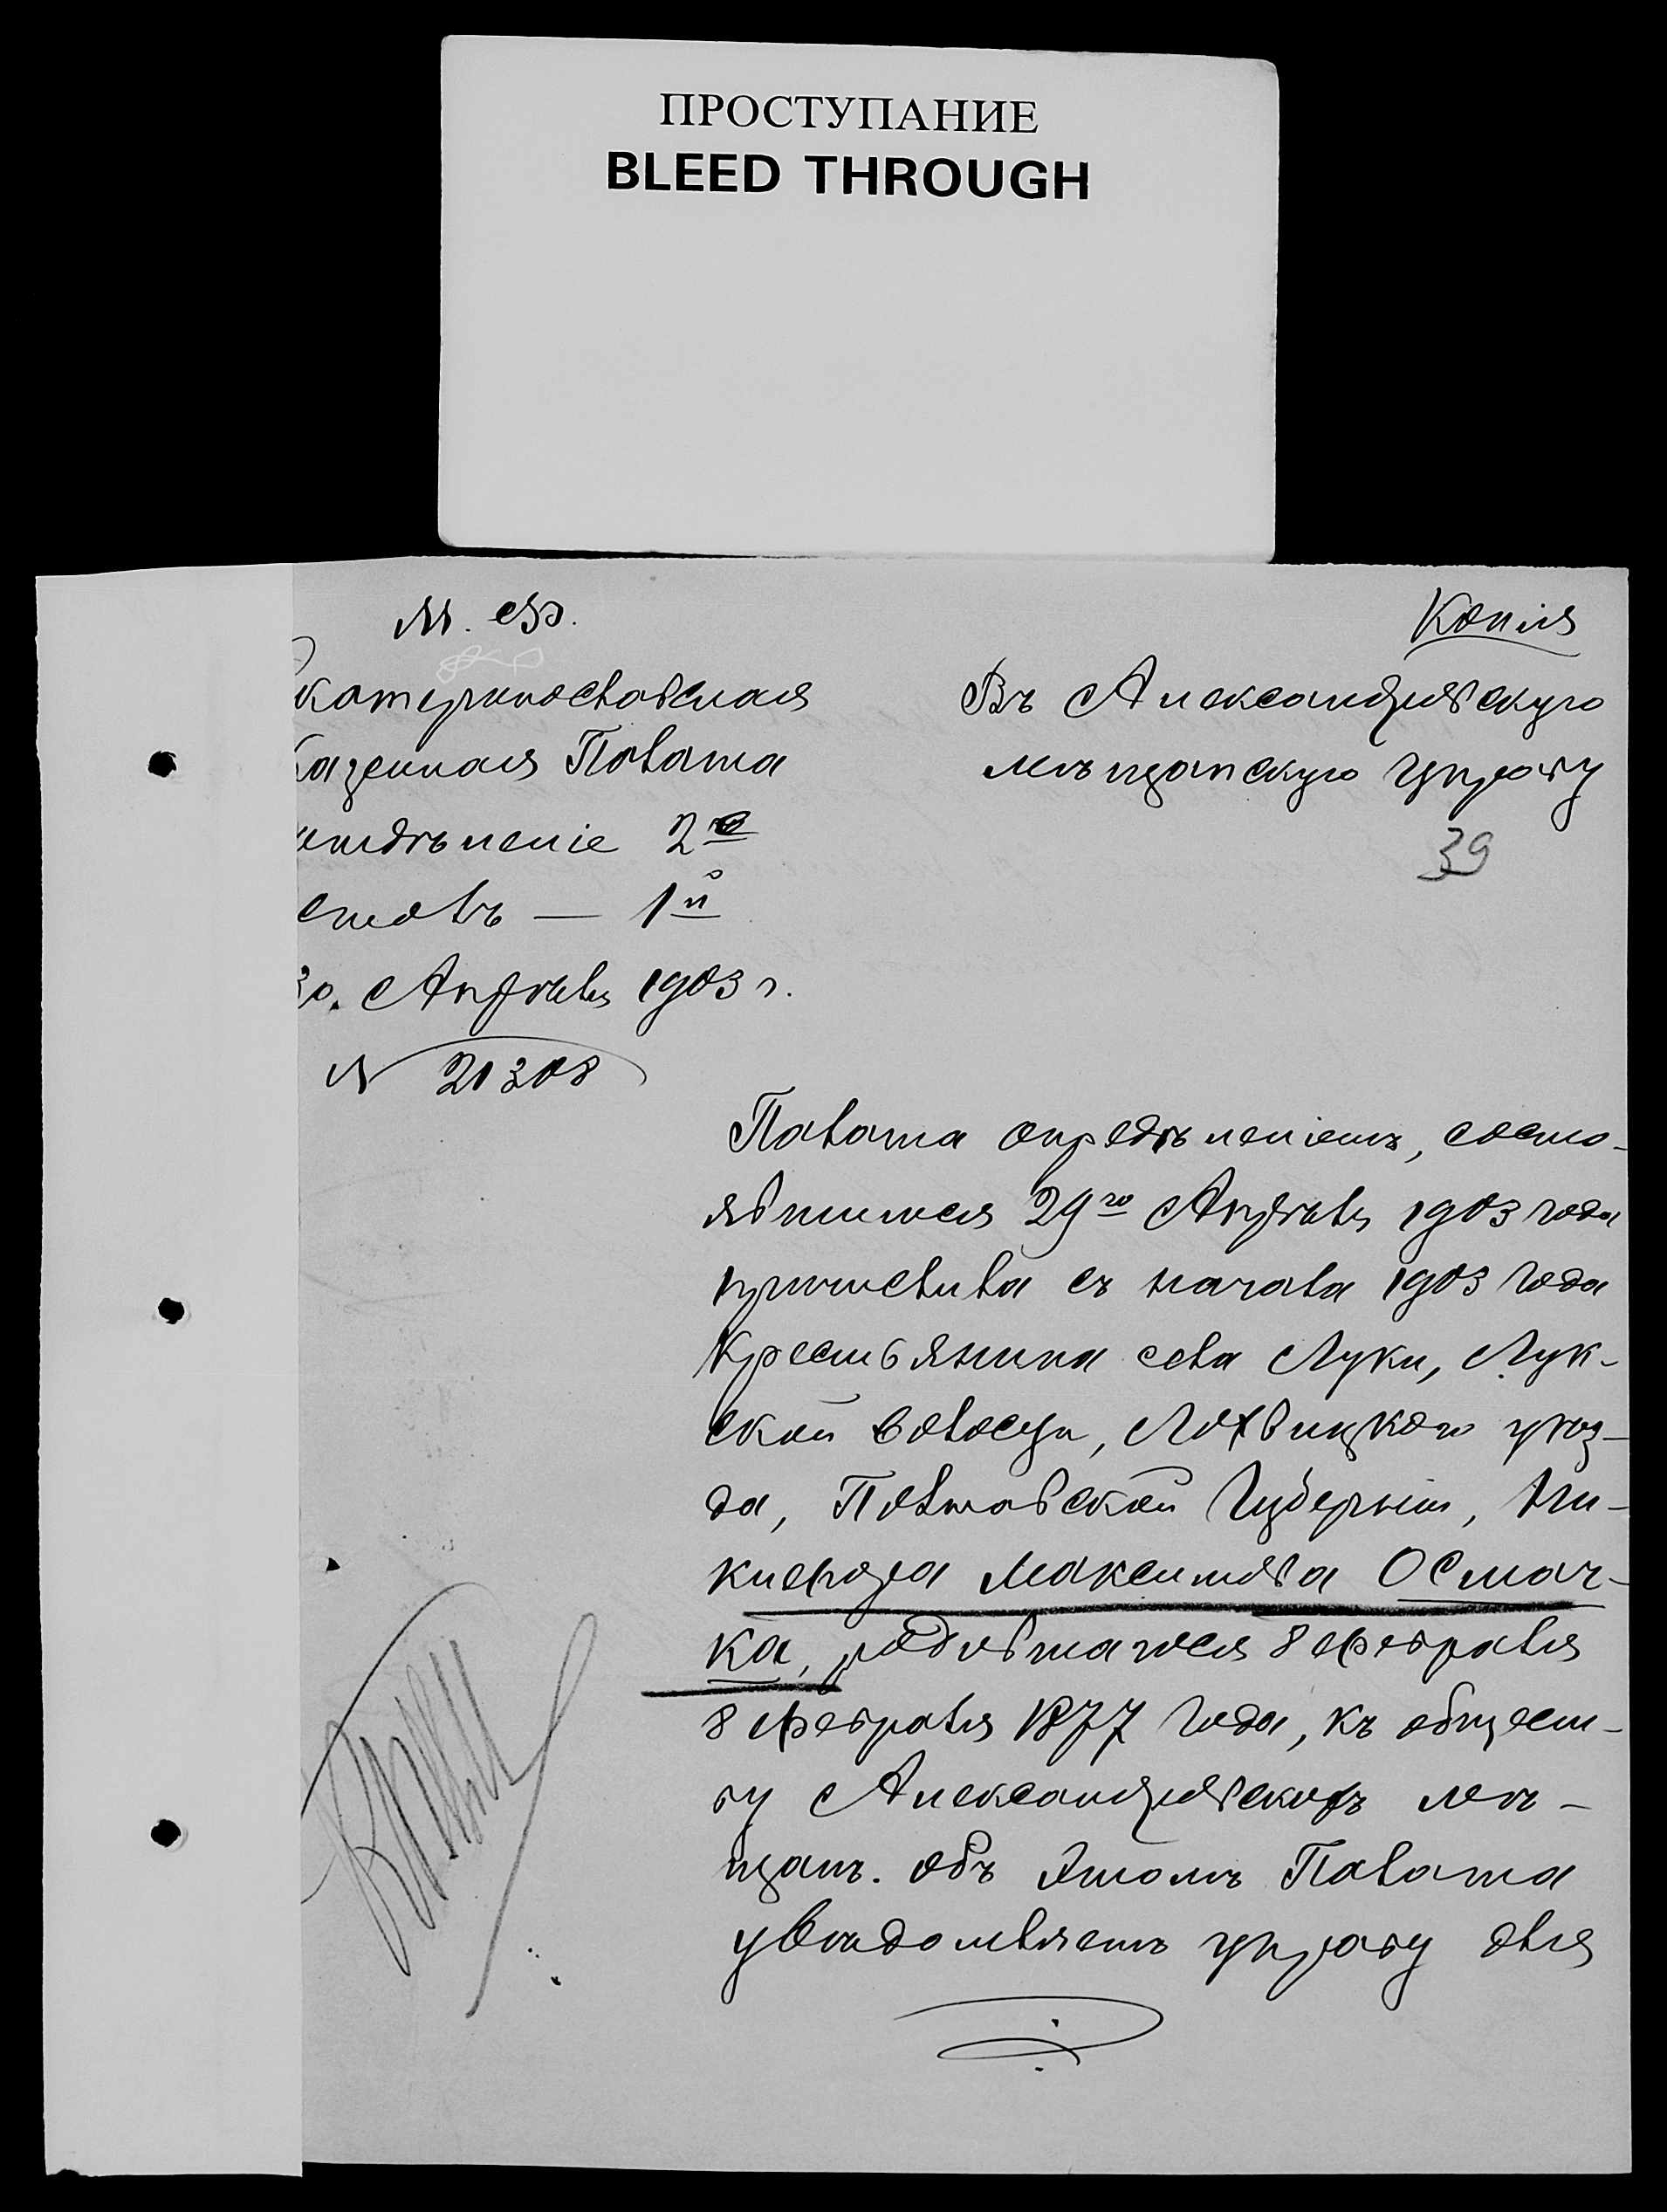 ПРОСТУПАНИЕ
BLEED THROUGH
М. Ф.
Копія
катеринославская
Въ Александровскую
азенная Палата
мѣщанскую управу
39
отдѣленіе 2е
столъ — 1й
30. Апрѣля 1903 г.
№ 21308
Палата опредѣленіемъ, состо-
явшимся 29го Апрѣля 1903 года
причислила съ начала 1903 года
Крестьянина села Луки, Лук-
ской волости, Лохвицкого уѣз-
да, Полтавской Губерніи, Ни-
кифора Максимова Осмач-
ка, родившагося 8 февраля
8 февраля 1877 года, къ общест-
ву Александровскихъ мѣ-
щанъ. Объ этомъ Палата
увѣдомляетъ управу для